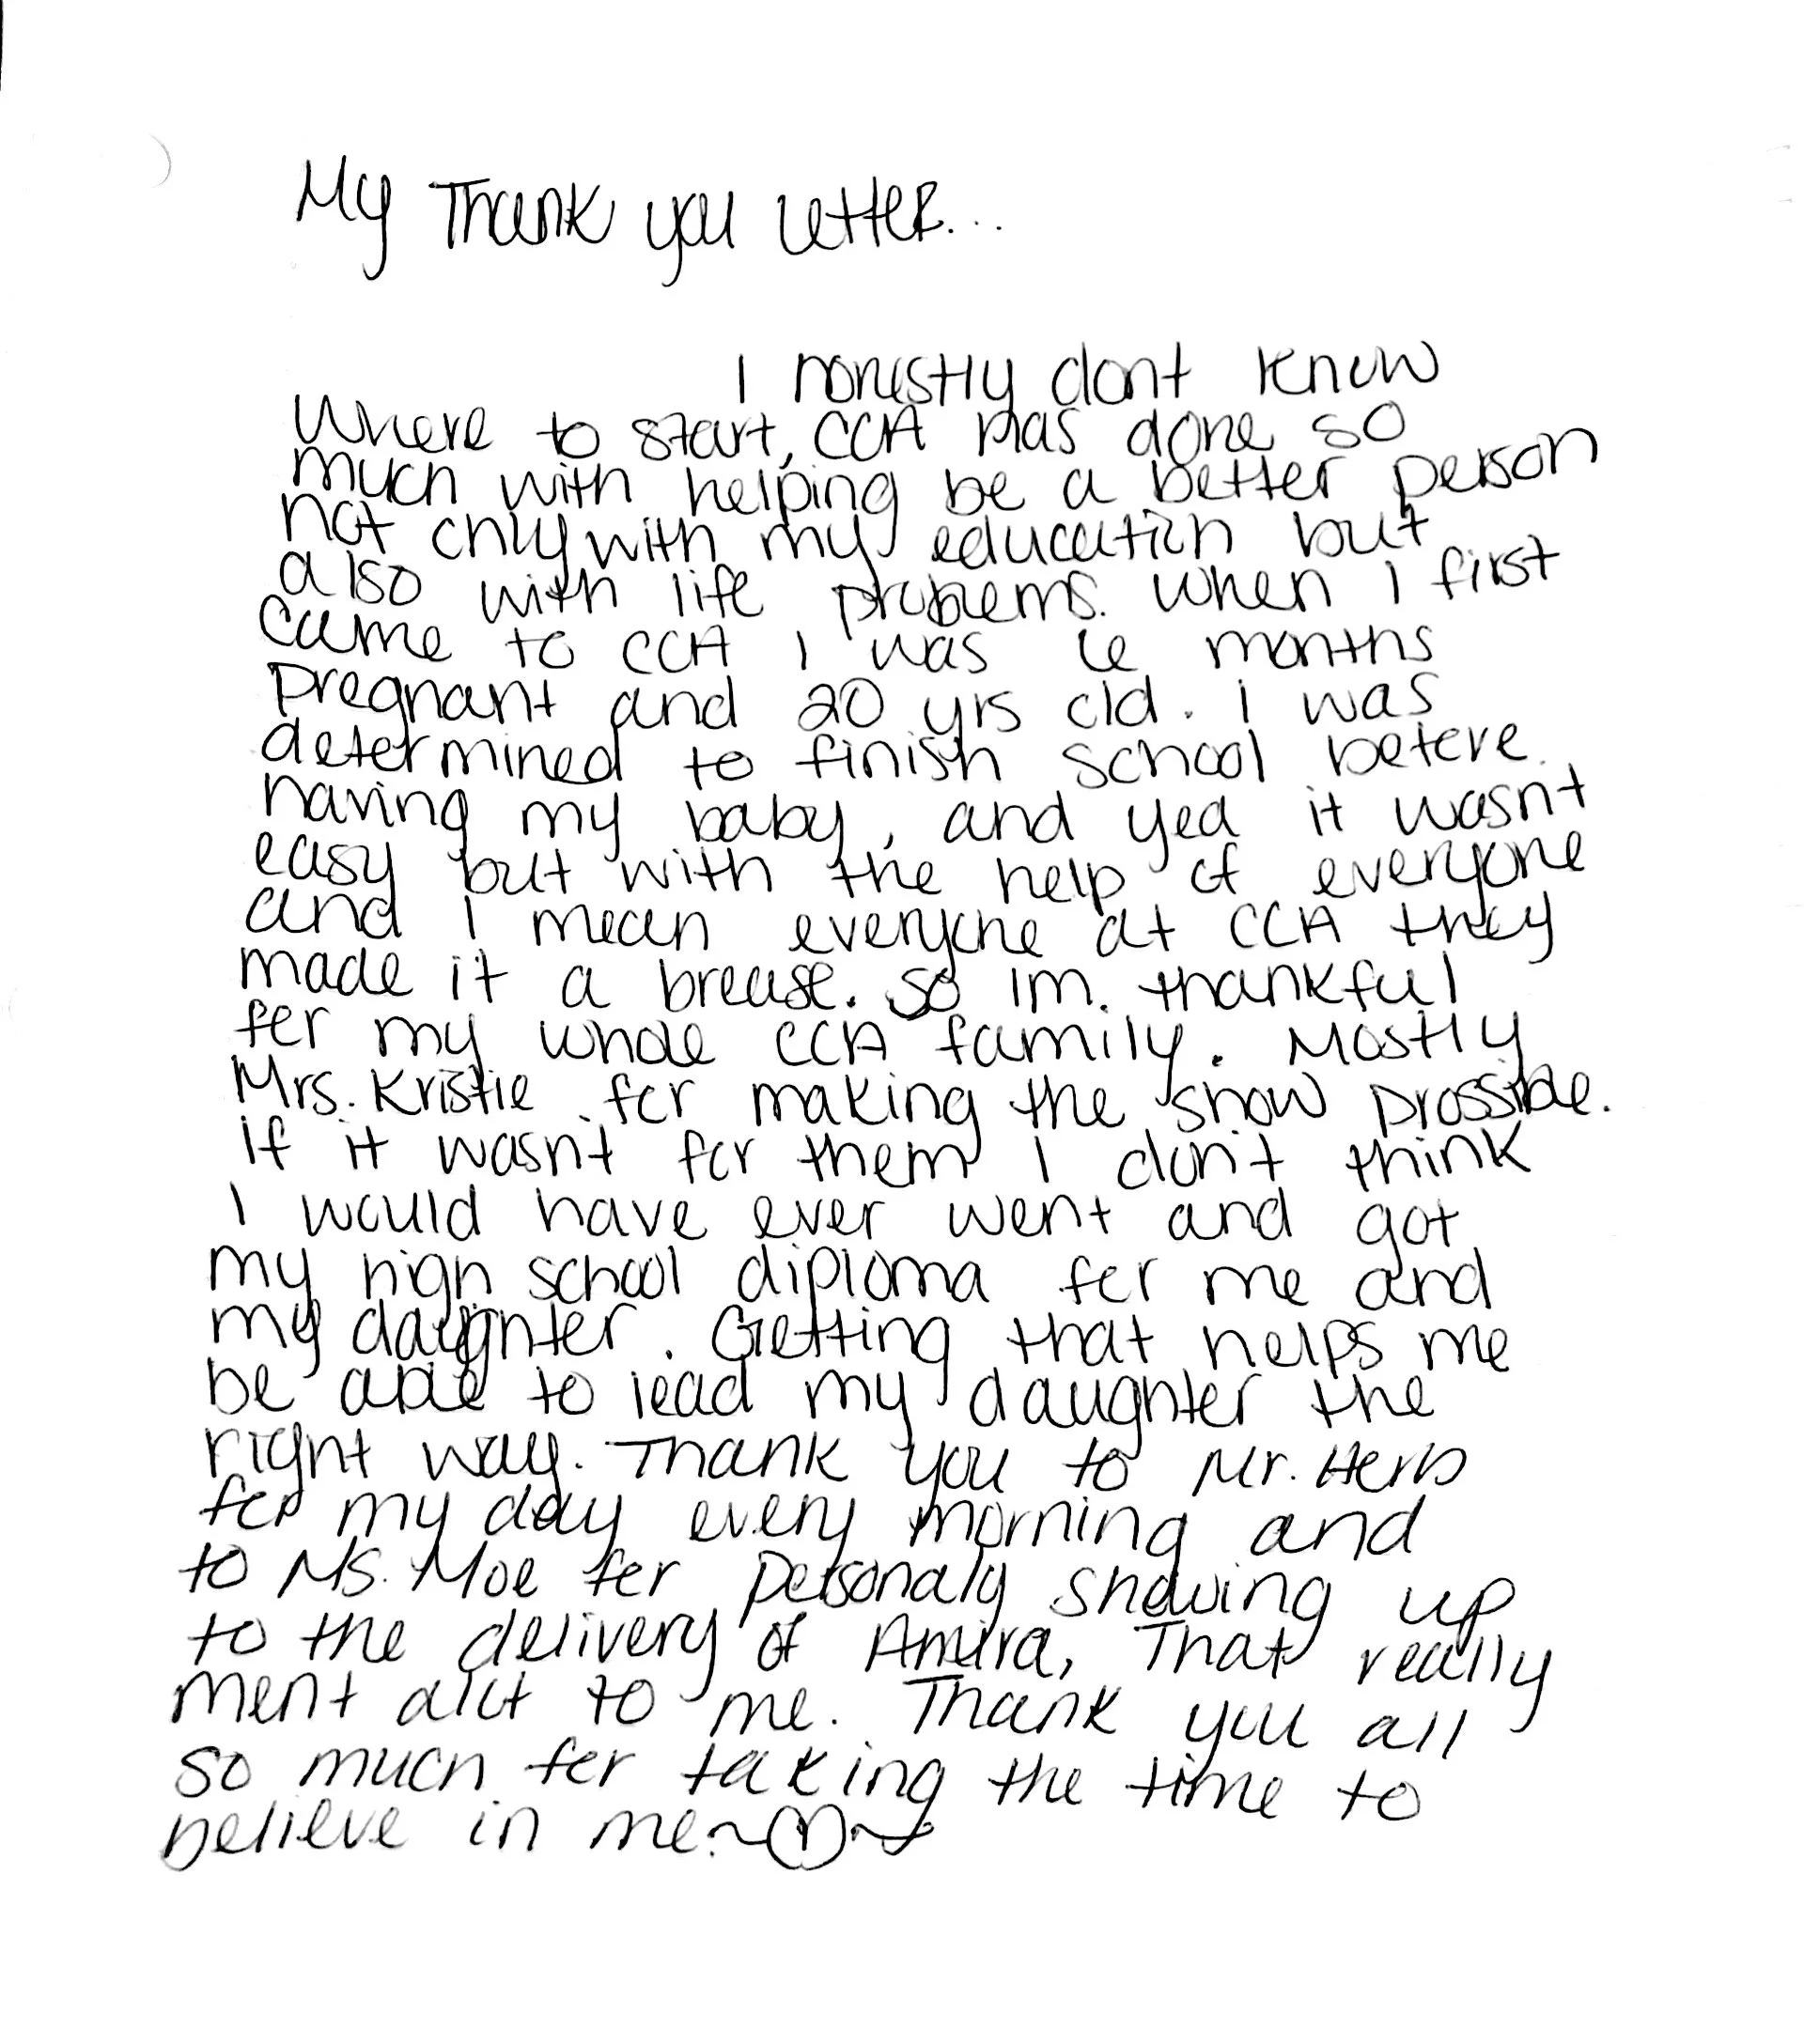 My Thank you letter...
I honestly dont know
Where to start, CCA has done so
much with helping be a better person
not only with my education but
also with life problems. When I first
came to CCA I was 6 months
pregnant and 20 yrs old. I was
determined to finish school before
having my baby, and yea it wasn't
easy but with the help of everyone
and I mean everyone at CCA they
made it a brease. So Im thankful
for my whole CCA family. Mostly
Mrs. Kristie for making the show prossible.
if it wasn't for them I don't think
I would have ever went and got
my high school diploma for me and
my daughter. Getting that helps me
be able to lead my daughter the
right way. Thank you to Mr. Herb
for my day every morning and
to Ms. Moe for personaly showing up
to the delivery of Amira, That really
ment alot to me. Thank you all
so much for taking the time to
believe in me.